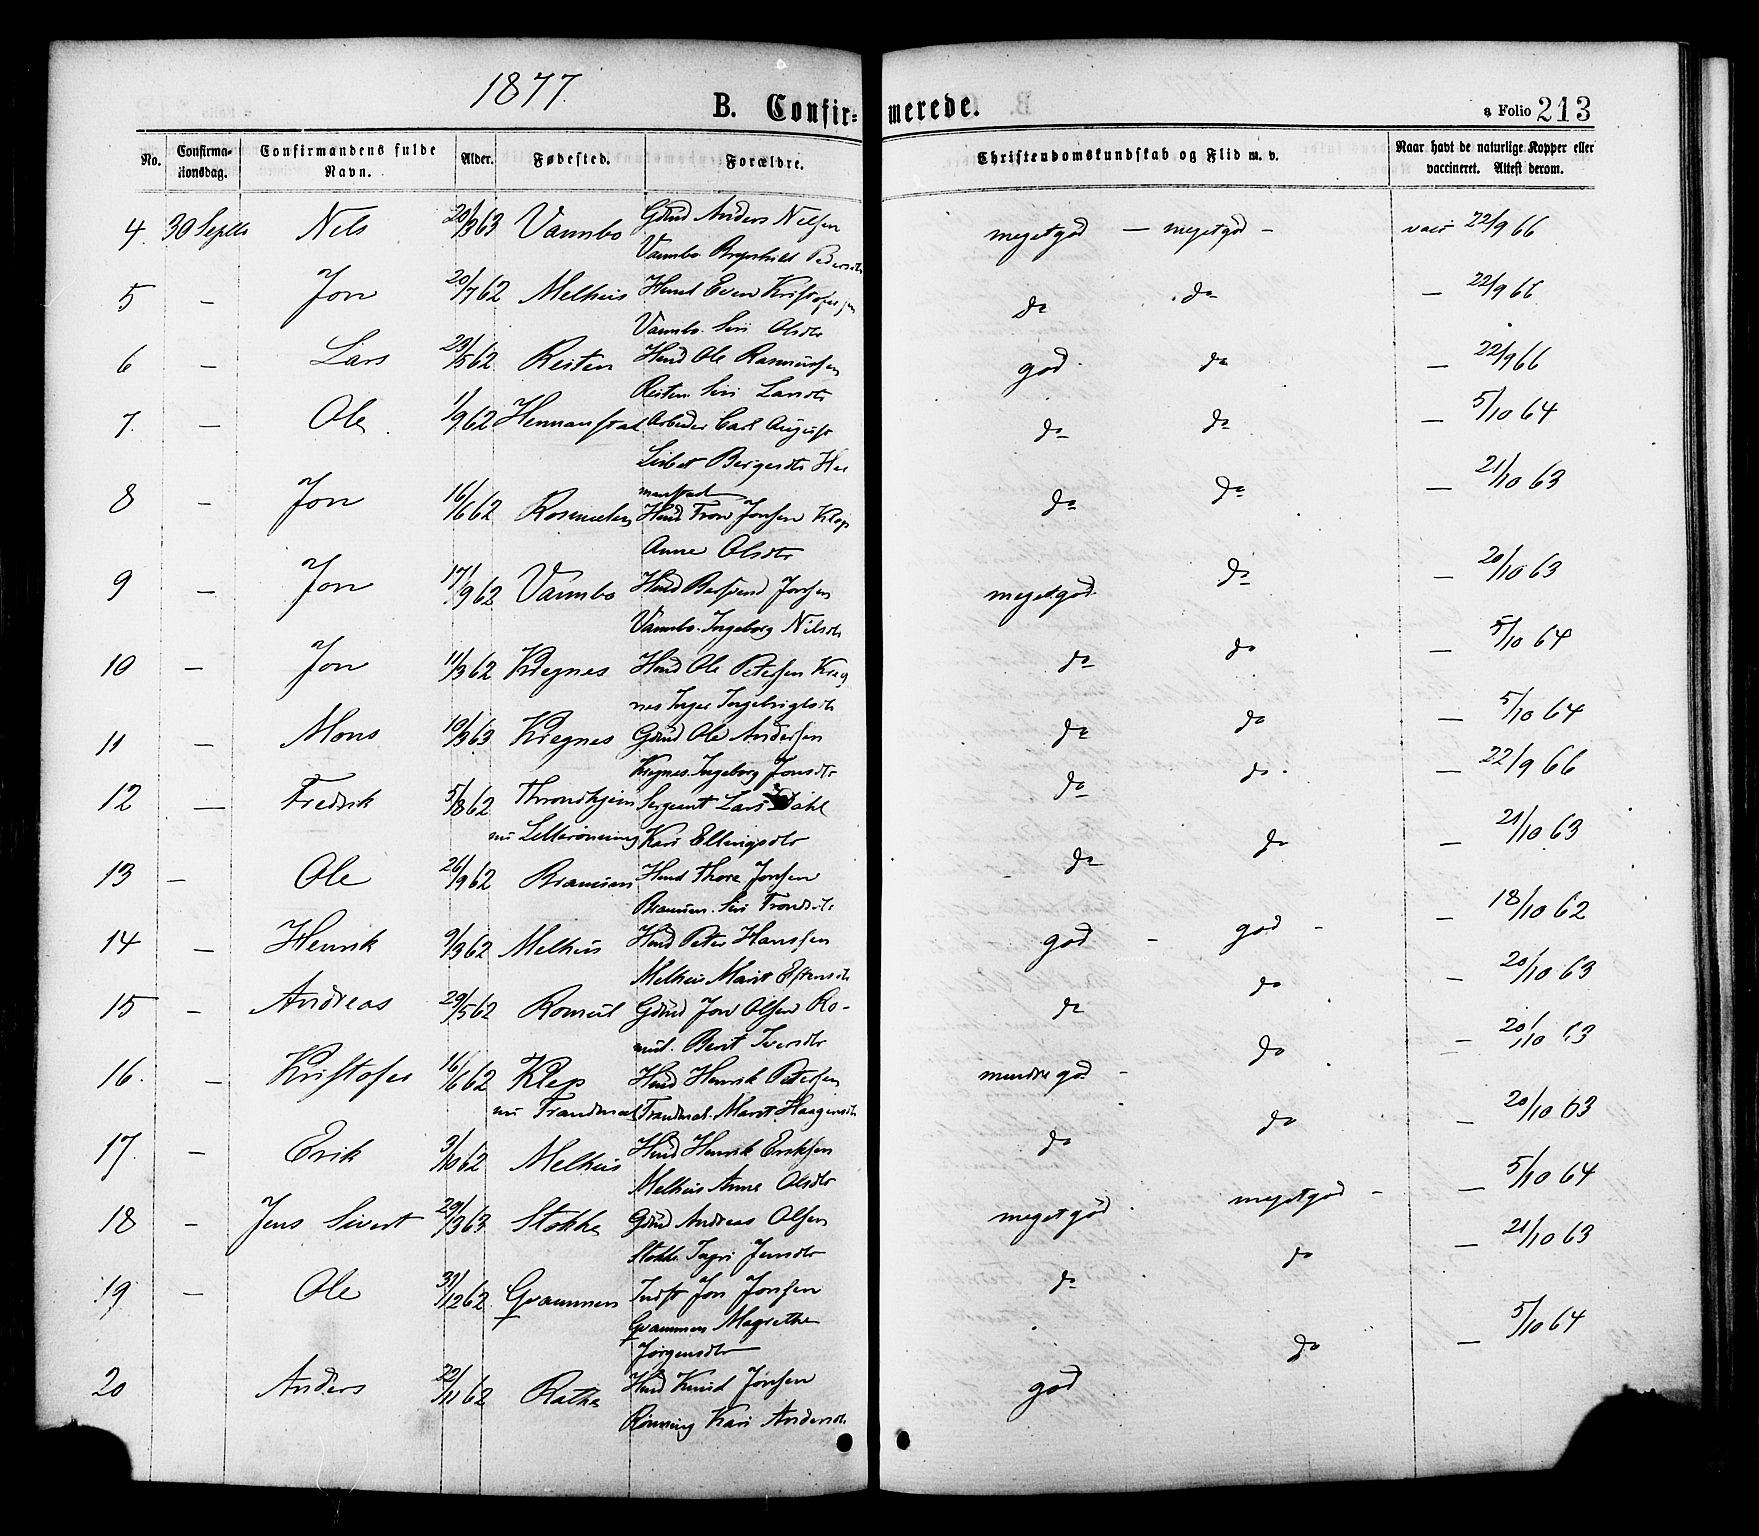 1877.
B. Confir-
merede.
a Folio 213
No.
Confirma-
tionsdag.
Confirmandens fulde
Navn.
Alder.
Fødested.
Forældre.
Christendomskundskab og Flid m. v.
Naar havt de naturlige Kopper eller
vaccineret. Attest derom.
4. 30 Septbr Nils 20/3 63 Vammbo Gdmd Anders Nilsen meget god — meget god — vacc 22/9 66
Vammbo
5 – Jon 20/7 62 Melhus Hmd Even Kristofersen do do — 22/9 66
Vammbo. Siri Olsdtr
6 – Lars 23/5 62 Reiten Hmd Ole Rasmussen god. do — 22/9 66
Reiten Siri Larsdtr
7. – Ole 1/9 62 Hermanstad Arbeider Carl August do do — 5/10 64
Lisbet Bergesdtr Her
manstad
8 – Jon 16/6 62 Hmd Tron Jonsen Klep do do — 21/10 63
Anne Olsdtr
9 – Jon 17/9 62 Vammbo Hmd Jonsen meget god. do — 20/10 63
Vammbo. Ingeborg Nilsdtr
10 – Jon 11/3 62 Kregnes Hmd Ole Petersen Kreg do do — 5/10 64
nes Inger Ingebrigtsdtr
11 – Mons 10/3 63 Kregnes Gdmd Ole Andersen do do — 5/10 64
Kregnes. Ingeborg Jonsdtr
12 — Fredrik 5/8 62 Throndhjem Sergeant Lars Dahl do do. — 22/9 66
nu Kari Ellingsdtr
13 – Ole 26/9 62 Bramsen Hmd Thore Jonsen do do — 21/10 63
Bramsen. Siri Trondsdtr
14 – Henrik 9/3 62 Melhus Hmd Peter Hanssen god – god – — 18/10 62
Melhus Marit Estensdtr
15 – Andreas 29/5 62 Romul Gdmd Jon Olsen Ro- do do — 20/10 63
mul. Berit Iversdtr
16. – Kristofer 16/6 62 Klep Hmd Henrik Petersen mindre god – do — 20/10 63
nu Trandmal Trandmal. Marit Haagensdtr
17. – Erik 3/10 62 Melhus Hmd Henrik Eriksen do do — 20/10 63
Melhus Anne Olsdtr
18 – Jens Sivert 29/3 63 Stokke Gdmd Andreas Olsen meget god. meget god – — 5/10 64
Stokke. Ingri Jensdtr
19 – Ole 31/12 62. Gravmmen Indst Jon Jonsen do do — 21/10 63
Magrethe
Jørgensdtr
20 Anders 22/11 62 Rathe Hmd Knud Jonsen god do — 5/10 64
Rønning Kari Andersdtr